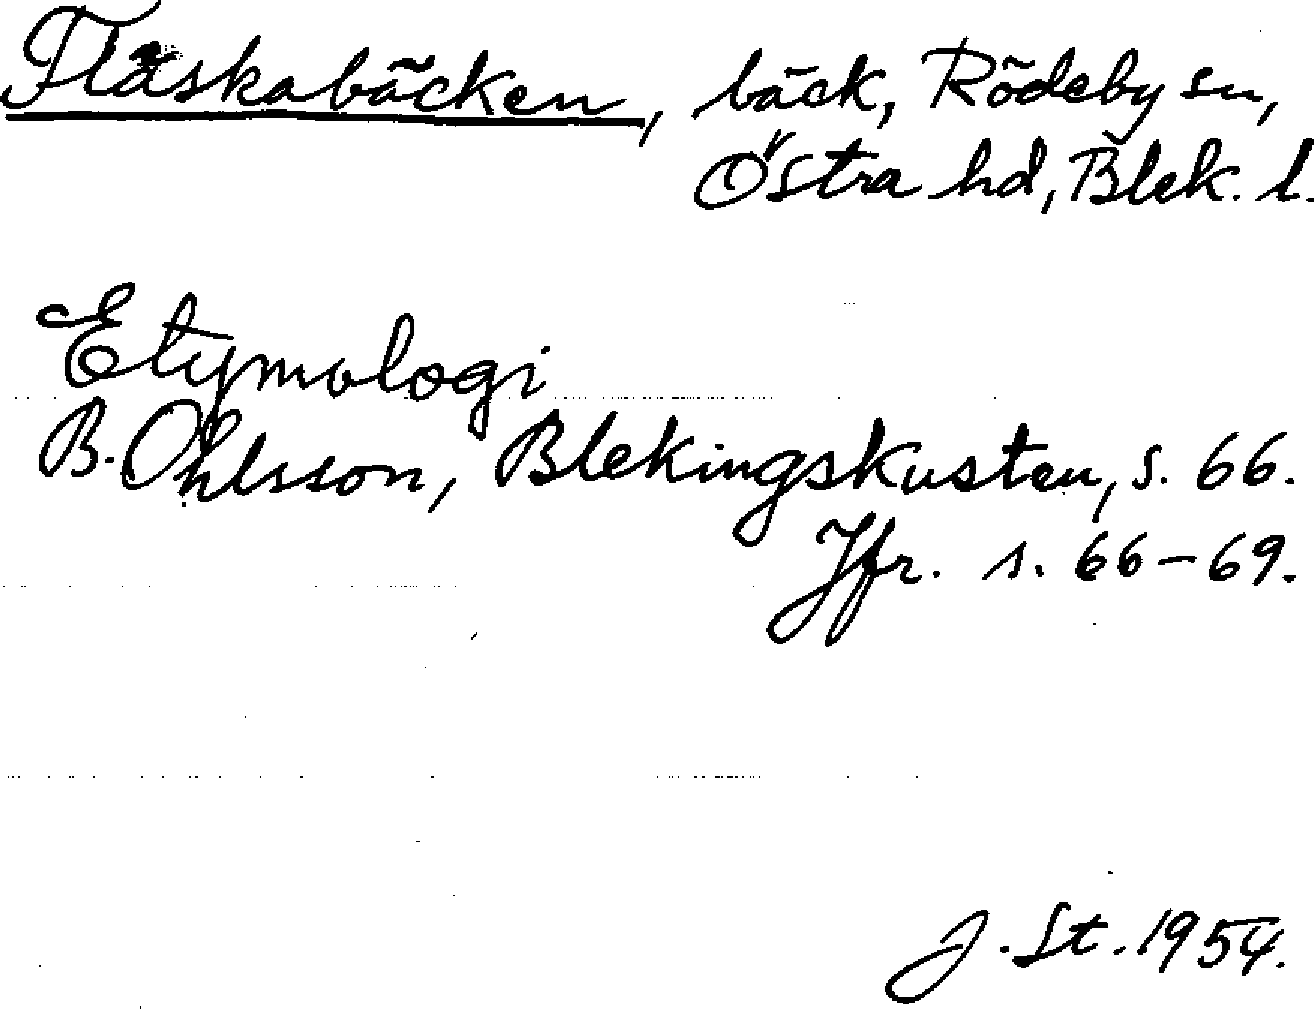 Fläskabäcken, bäck, Rödeby sn,
Östra hd, Blek. l.
Etymologi
B. Ohlsson, Blekingskusten, s. 66.
Jfr. s. 66-69.
J. St. 1954.